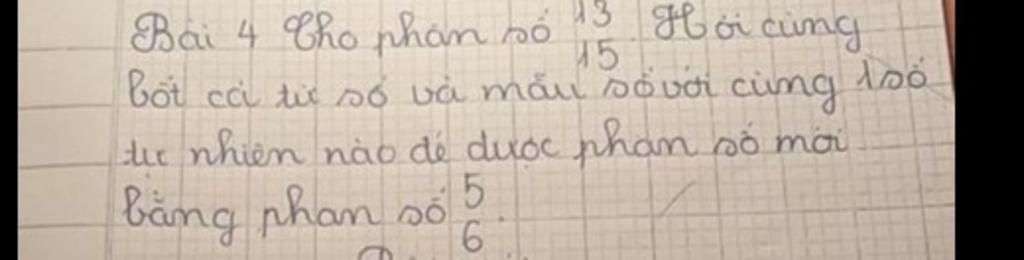 Bài 4 Cho phân số 13/15. Hỏi cùng
bớt cả tử số và mẫu số với cùng 1 số
tự nhiên nào để được phân số mới
bằng phân số 5/6.